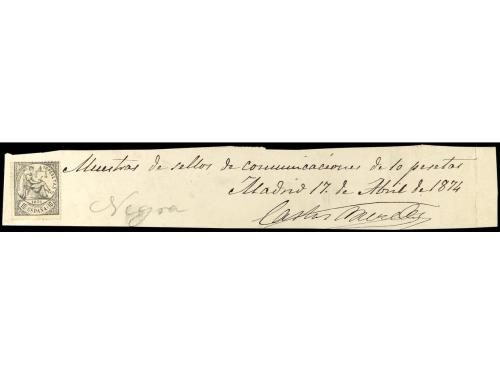 Muestras de sellos de comunicaciones de 10 pesetas
Madrid 17. de Abril de 1874
Negra
1874
ESPAÑA